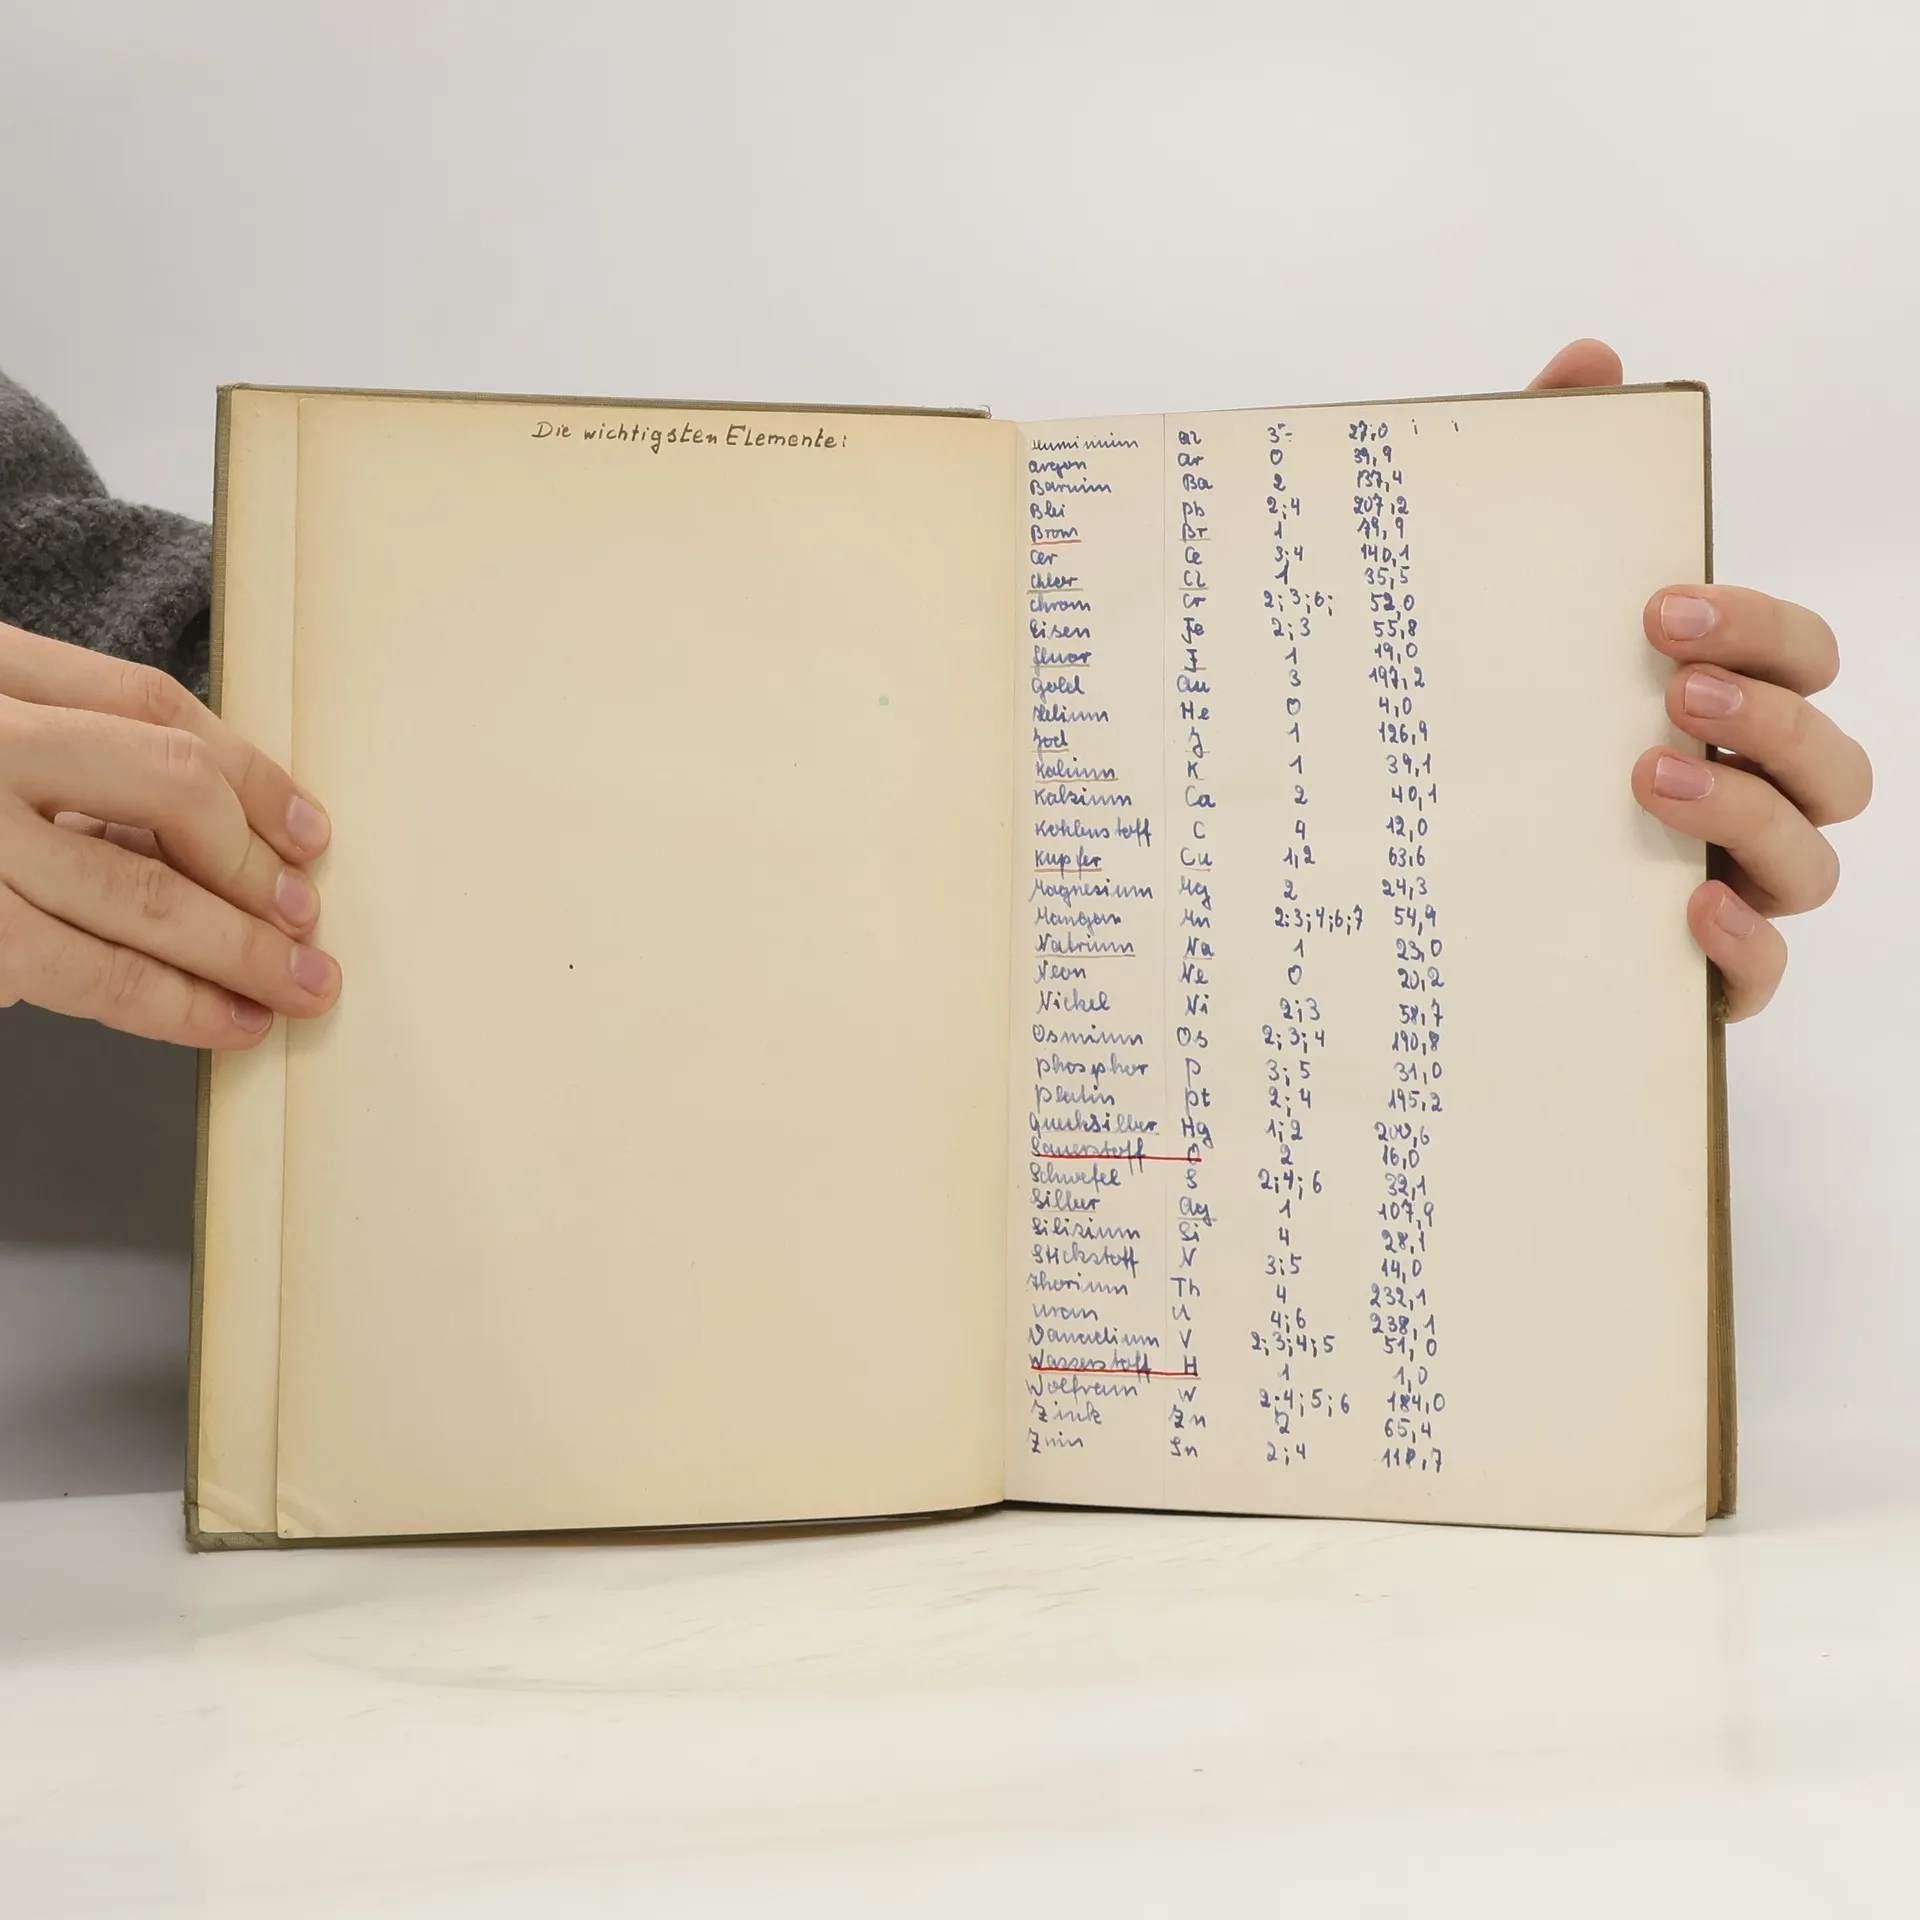 Die wichtigsten Elemente:
Aluminium Al 3 27,0
Argon Ar 0 39,9
Barium Ba 2 137,4
Blei Pb 2;4 207,2
Brom Br 1 79,9
Cer Ce 3;4 140,1
Chlor Cl 1 35,5
Chrom Cr 2;3;6; 52,0
Eisen Fe 2;3 55,8
Fluor F 1 19,0
Gold Au 3 197,2
Helium He 0 4,0
Jod J 1 126,9
Kalium K 1 39,1
Kalzium Ca 2 40,1
Kohlenstoff C 4 12,0
Kupfer Cu 1,2 63,6
Magnesium Mg 2 24,3
Mangan Mn 2;3;4;6;7 54,9
Natrium Na 1 23,0
Neon Ne 0 20,2
Nickel Ni 2;3 58,7
Osmium Os 2;3;4 190,8
Phosphor P 3;5 31,0
Platin Pt 2;4 195,2
Quecksilber Hg 1;2 200,6
Sauerstoff O 2 16,0
Schwefel S 2;4;6 32,1
Silber Ag 1 107,9
Silizium Si 4 28,1
Stickstoff N 3;5 14,0
Thorium Th 4 232,1
Uran U 4;6 238,1
Vanadium V 2;3;4;5 51,0
Wasserstoff H 1 1,0
Wolfram W 2;4;5;6 184,0
Zink Zn 2 65,4
Zinn Sn 2;4 118,7